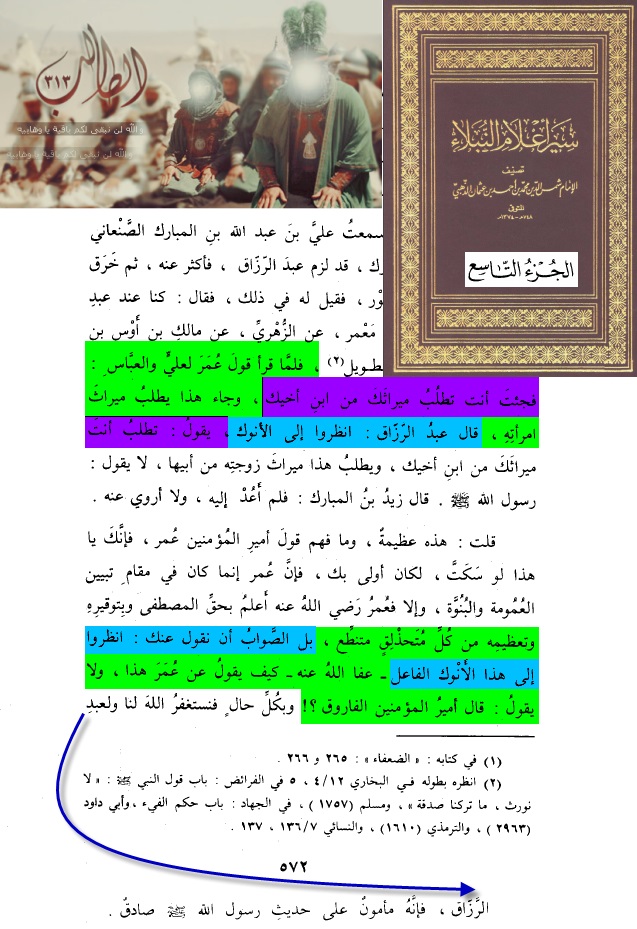 الطالب ٣١٣
والله لن نبقي لكم باقية يا وهابيه
والله لن نبقي لكم باقية يا وهابيه
سير أعلام النبلاء
تصنيف
الإمام شمس الدين محمد بن أحمد بن عثمان الذهبي
المتوفى
٧٤٨هـ - ١٣٧٤م
الجزء التاسع
سمعتُ عليَّ بنَ عبد الله بنِ المبارك الصَّنْعاني
رك ، قد لزم عبدَ الرّزّاق ، فأكثر عنه ، ثم خَرَق
ور ، فقيل له في ذلك ، فقال : كنا عند عبدِ
مَعْمر ، عن الزُّهْريِّ ، عن مالكِ بن أَوْس بن
طويل(٢) ، فلمَّا قرأ قولَ عُمَرَ لعليٍّ والعبَّاس :
فجئتَ أنت تطلُبُ ميراثَكَ من ابنِ أخيك ، وجاء هذا يطلبُ ميراثَ
امرأتِهِ ، قال عبدُ الرّزّاق : انظروا إلى الأنوك ، يقولُ : تطلبُ أنتَ
ميراثَكَ من ابنِ أخيك ، ويطلبُ هذا ميراثَ زوجتِهِ من أبيها ، لا يقول :
رسول الله ﷺ . قال زيدُ بنُ المبارك : فلم أَعُدْ إليه ، ولا أروي عنه .
قلت : هذه عظيمةٌ ، وما فهم قولَ أميرِ المُؤمنين عُمر ، فإنَّكَ يا
هذا لو سَكَتَّ ، لكان أولى بك ، فإنَّ عُمر إنما كان في مقامِ تبيين
العُمومة والبُنُوَّة ، وإلا فعُمرُ رَضي اللهُ عنه أعلمُ بحقِّ المصطفى وبِتوقيرِهِ
وتعظيمِه من كُلِّ مُتَحذْلِقٍ متنطِّع ، بل الصَّوابُ أن نقول عنك : انظروا
إلى هذا الأَنْوك الفاعل ـ عفا اللهُ عنه ـ كيف يقولُ عن عُمَرَ هذا ، ولا
يقولُ : قال أميرُ المؤمنين الفاروق ؟! وبكُلِّ حالٍ فنستغفرُ اللهَ لنا ولعبدِ
(١) في كتابه : « الضعفاء » : ٢٦٥ و ٢٦٦ .
(٢) انظره بطوله في البخاري ٤/١٢ ، ٥ في الفرائض : باب قول النبي ﷺ : « لا
نورث ، ما تركنا صدقة » ، ومسلم (١٧٥٧) ، في الجهاد : باب حكم الفيء ، وأبي داود
(٢٩٦٣) ، والترمذي (١٦١٠) ، والنسائي ١٣٦/٧ ، ١٣٧ .
٥٧٢
الرَّزَّاق ، فإنَّهُ مأمونٌ على حديثِ رسول الله ﷺ صادقٌ .